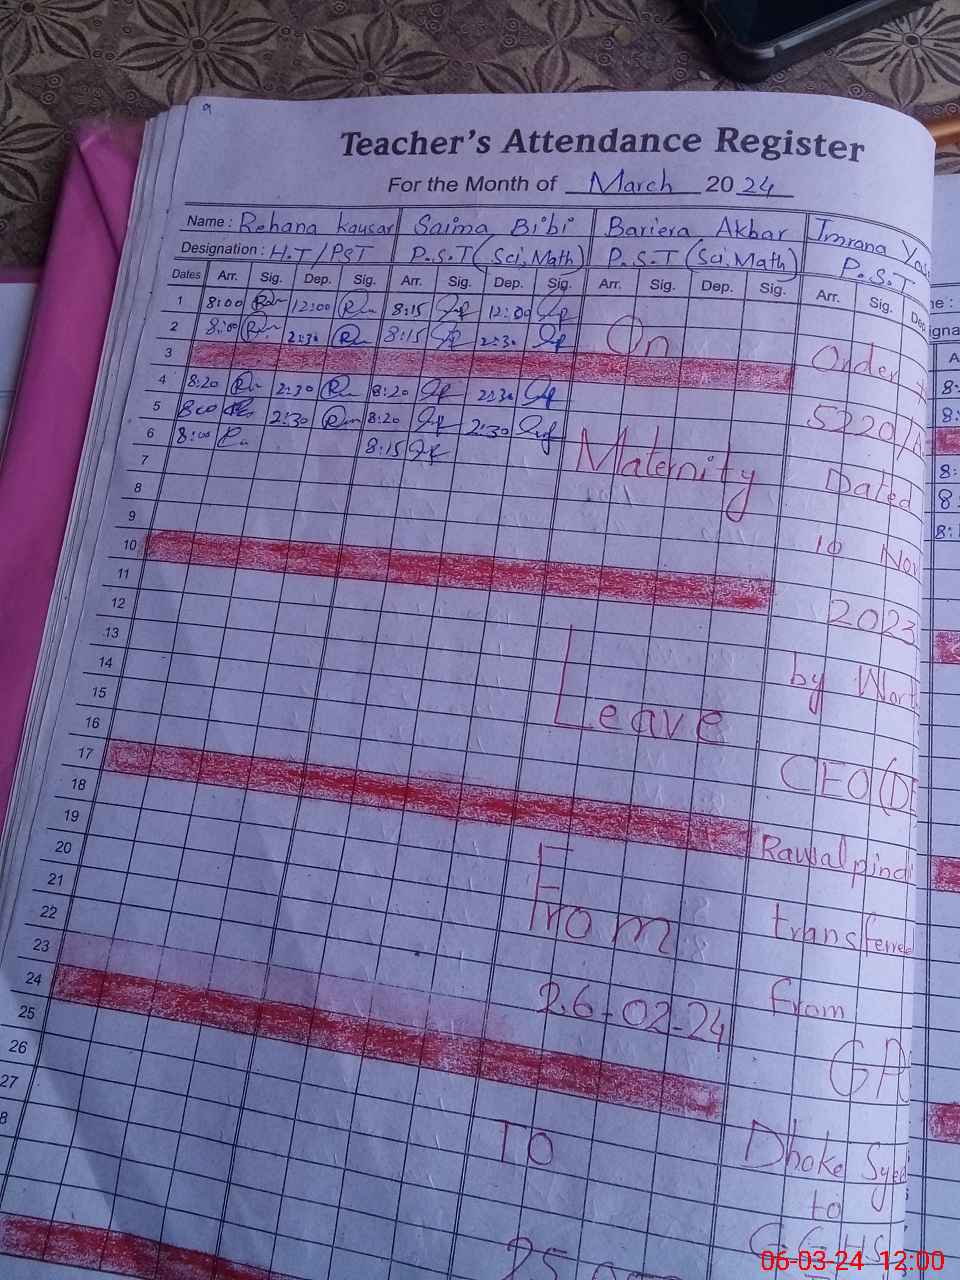 Teacher's Attendance Register
For the Month of March 2024
Name : Rehana Kausar Saima Bibi Bariera Akbar Imrana
Designation : H.T/PST P.S.T (Sci, Math) P.S.T (Sci, Math) P.S.T
Dates Arr. Sig. Dep. Sig. Arr. Sig. Dep. Sig. Arr. Sig. Dep. Sig. Arr. Sig.
1 8:00 12:00 8:15 12:00
2 8:00 2:30 8:15 2:30 On Order
3
4 8:20 2:30 8:20 2:30
5 8:00 2:30 8:20 2:30 5220/A
6 8:00 8:15 Maternity Dated
7
8
9 10 Nov
10
11 2023
12
13 by
14
15 Leave
16 CEO
17
18 Rawalpindi
19
20 From transferred
21
22
23 26-02-24 from
24
25
26
27 To Dhoke
8 to
25 G.G.H.S
06-03-24 12:00